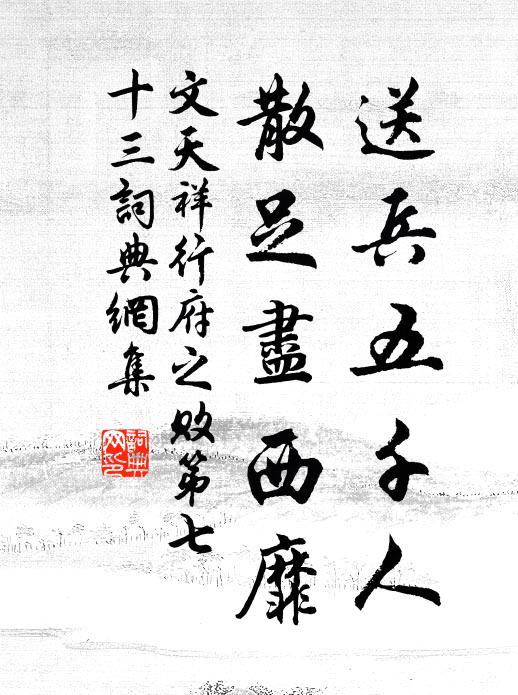 送兵五千人
散足盡西靡
文天祥行府之敗第七
十三詞典網集
詞典
网印